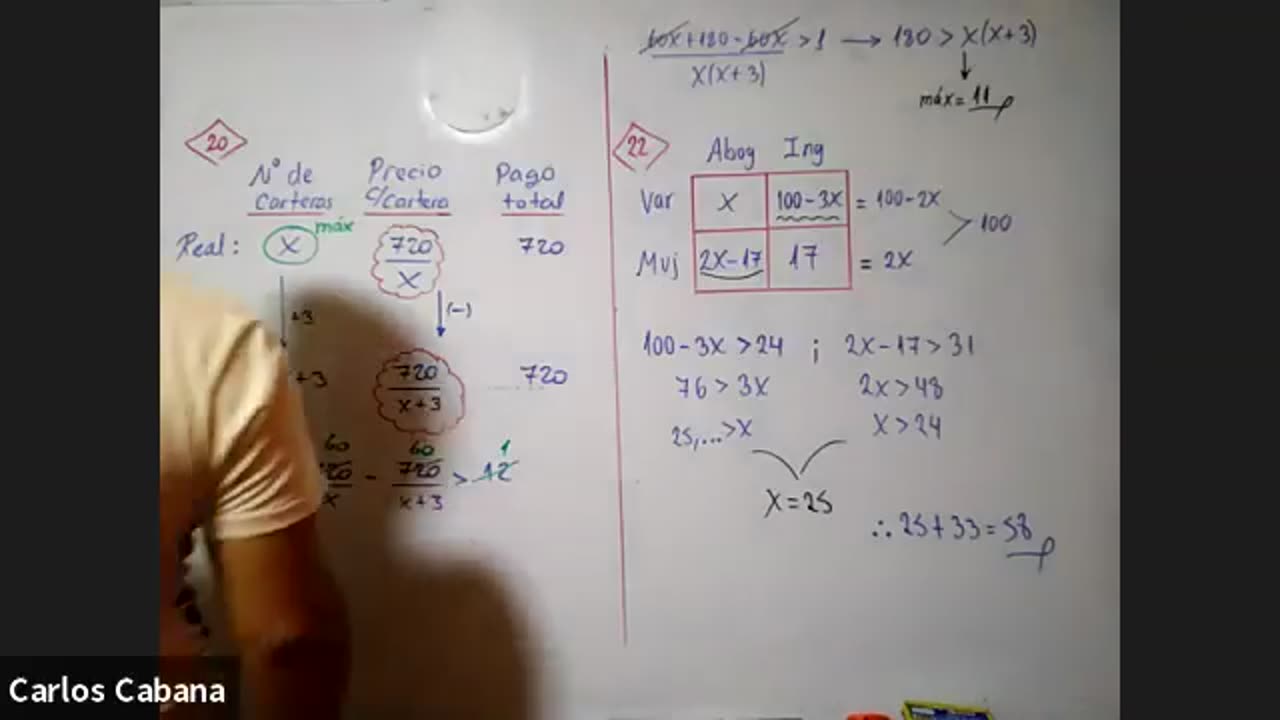 20
N° de Carteras Precio c/Cartera Pago total
Real: x máx 720/x 720
+3 (-)
+3 720/x+3 720
60 60 1
720/x - 720/x+3 > 12
60x+180-60x/x(x+3) > 1 → 180 > x(x+3)
máx = 11
22
Abog Ing
Var x 100-3x = 100-2x
> 100
Muj 2x-17 17 = 2x
100-3x > 24 ; 2x-17 > 31
76 > 3x 2x > 48
25,... > x x > 24
x = 25
∴ 25+33 = 58
Carlos Cabana